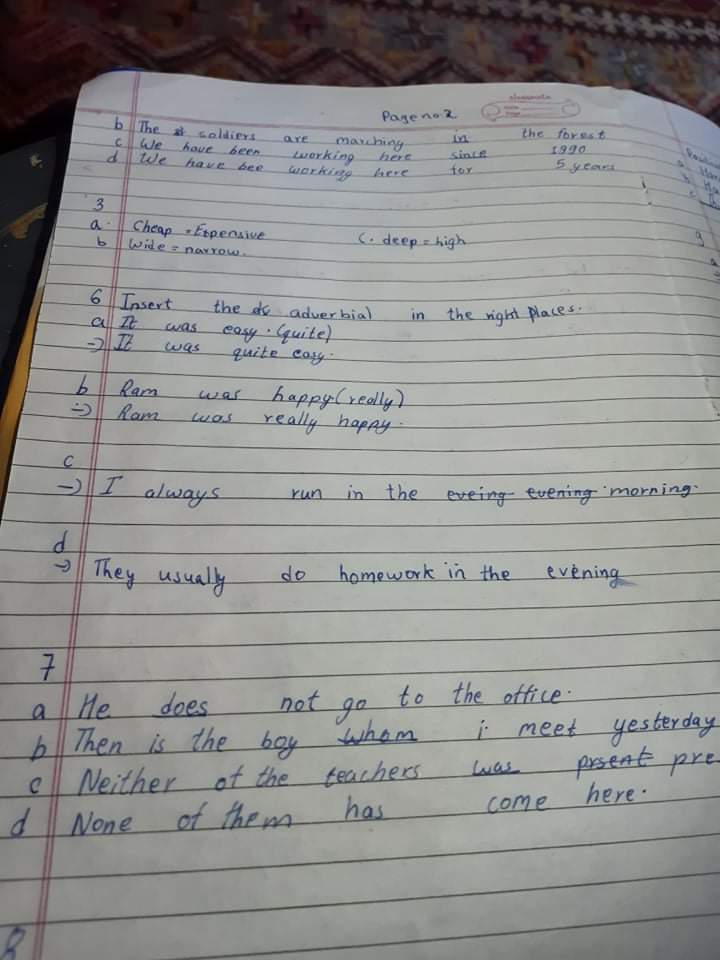 Page no. 2
classmate
b The soldiers are marching in the forest
c We have been working here since 1990
d We have bee working here for 5 years
3
a. Cheap = Expensive c. deep = high
b Wide = narrow.
6 Insert the adverbial in the right places.
a It was easy. (quite)
→ It was quite easy.
b Ram was happy (really)
→ Ram was really happy.
c
→ I always run in the eveing evening morning.
d
→ They usually do homework in the evening
7
a He does not go to the office.
b Then is the boy whom i meet yesterday
c Neither of the teachers was prsent pre
d None of them has come here.
8